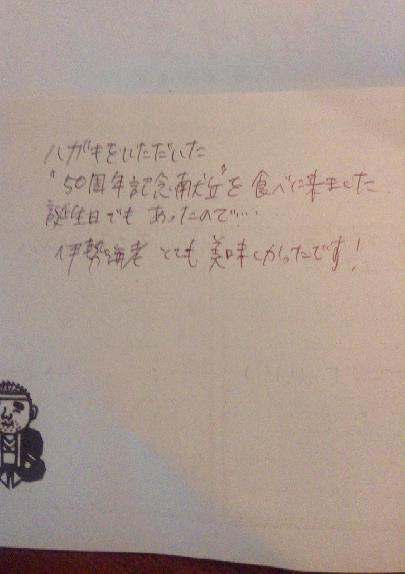 ハガキをいただいた
"50周年記念献立"を 食べに来ました
誕生日でも あったので…
伊勢海老 とても 美味しかったです!